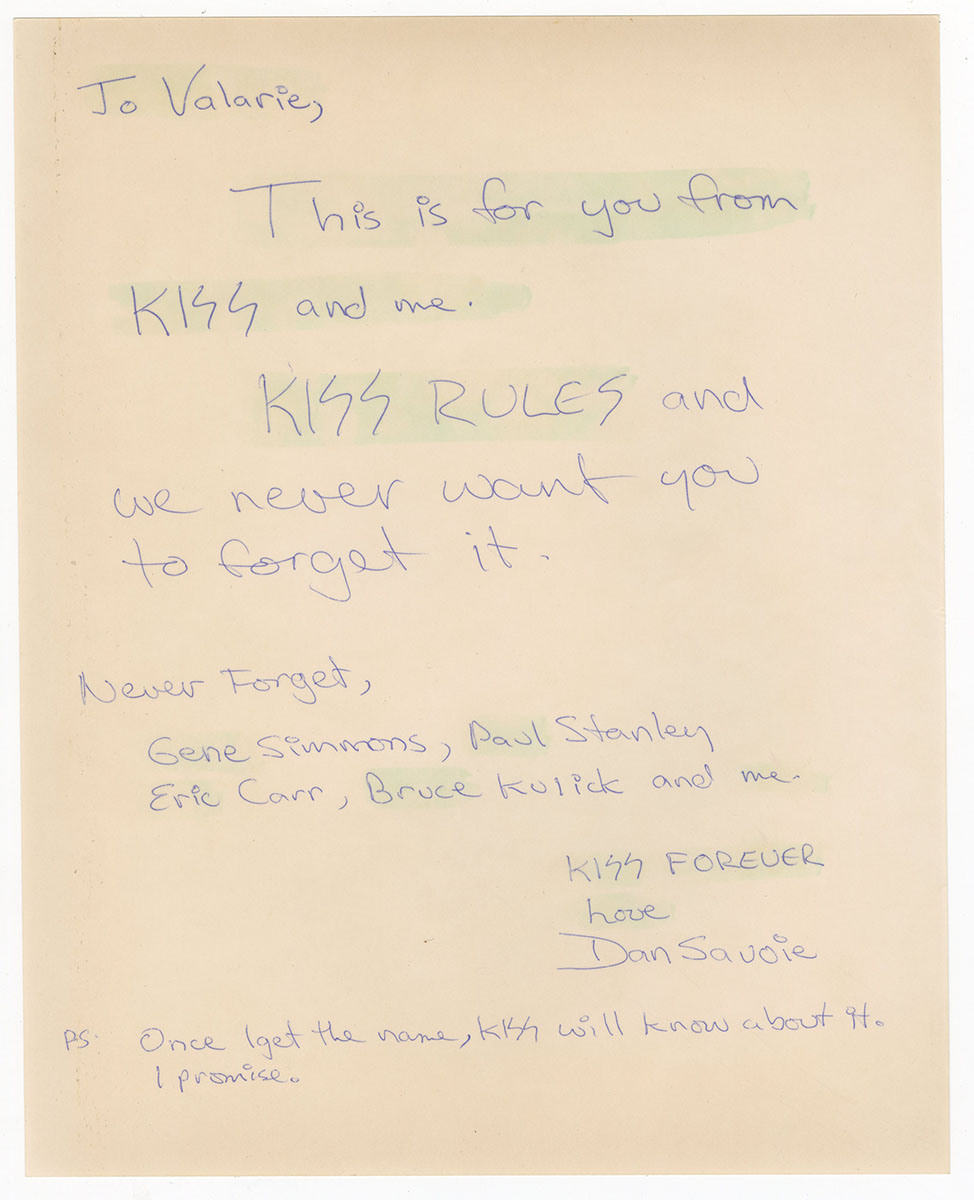 To Valarie,
This is for you from
KISS and me.
KISS RULES and
we never want you
to forget it.
Never Forget,
Gene Simmons, Paul Stanley
Eric Carr, Bruce Kulick and me.
KISS FOREVER
Love
Dan Savoie
PS: Once I get the name, KISS will know about it.
I promise.